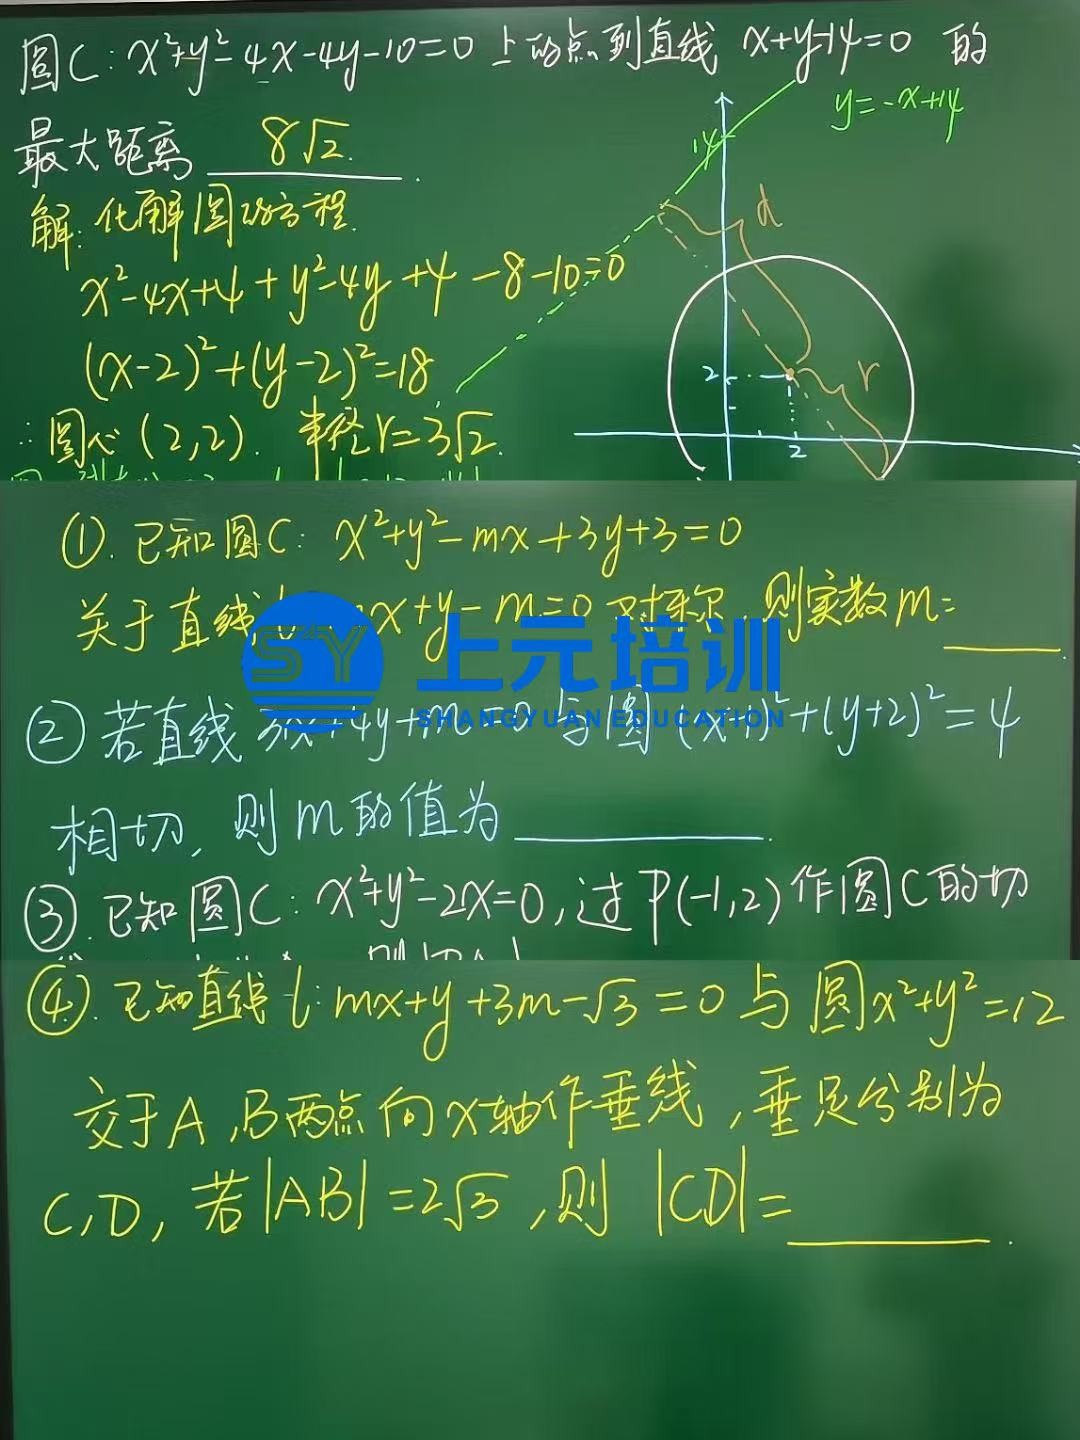 圆C: x²+y²-4x-4y-10=0 上的点到直线 x+y-14=0 的
最大距离 8√2.
y=-x+14
14
d
r
2
2
解: 化解圆的方程.
x²-4x+4+y²-4y+4-8-10=0
(x-2)²+(y-2)²=18
∴圆心(2,2). 半径r=3√2.
①. 已知圆C: x²+y²-mx+3y+3=0
关于直线 x+y-m=0 对称, 则实数m=
SY 上元培训
SHANGYUAN EDUCATION
② 若直线 3x+4y+m=0 与圆 (x-1)²+(y+2)²=4
相切, 则m的值为
③. 已知圆C: x²+y²-2x=0, 过P(-1,2)作圆C的切
④. 已知直线l: mx+y+3m-√3=0 与圆x²+y²=12
交于A,B两点向x轴作垂线, 垂足分别为
C,D, 若|AB|=2√3, 则 |CD|=